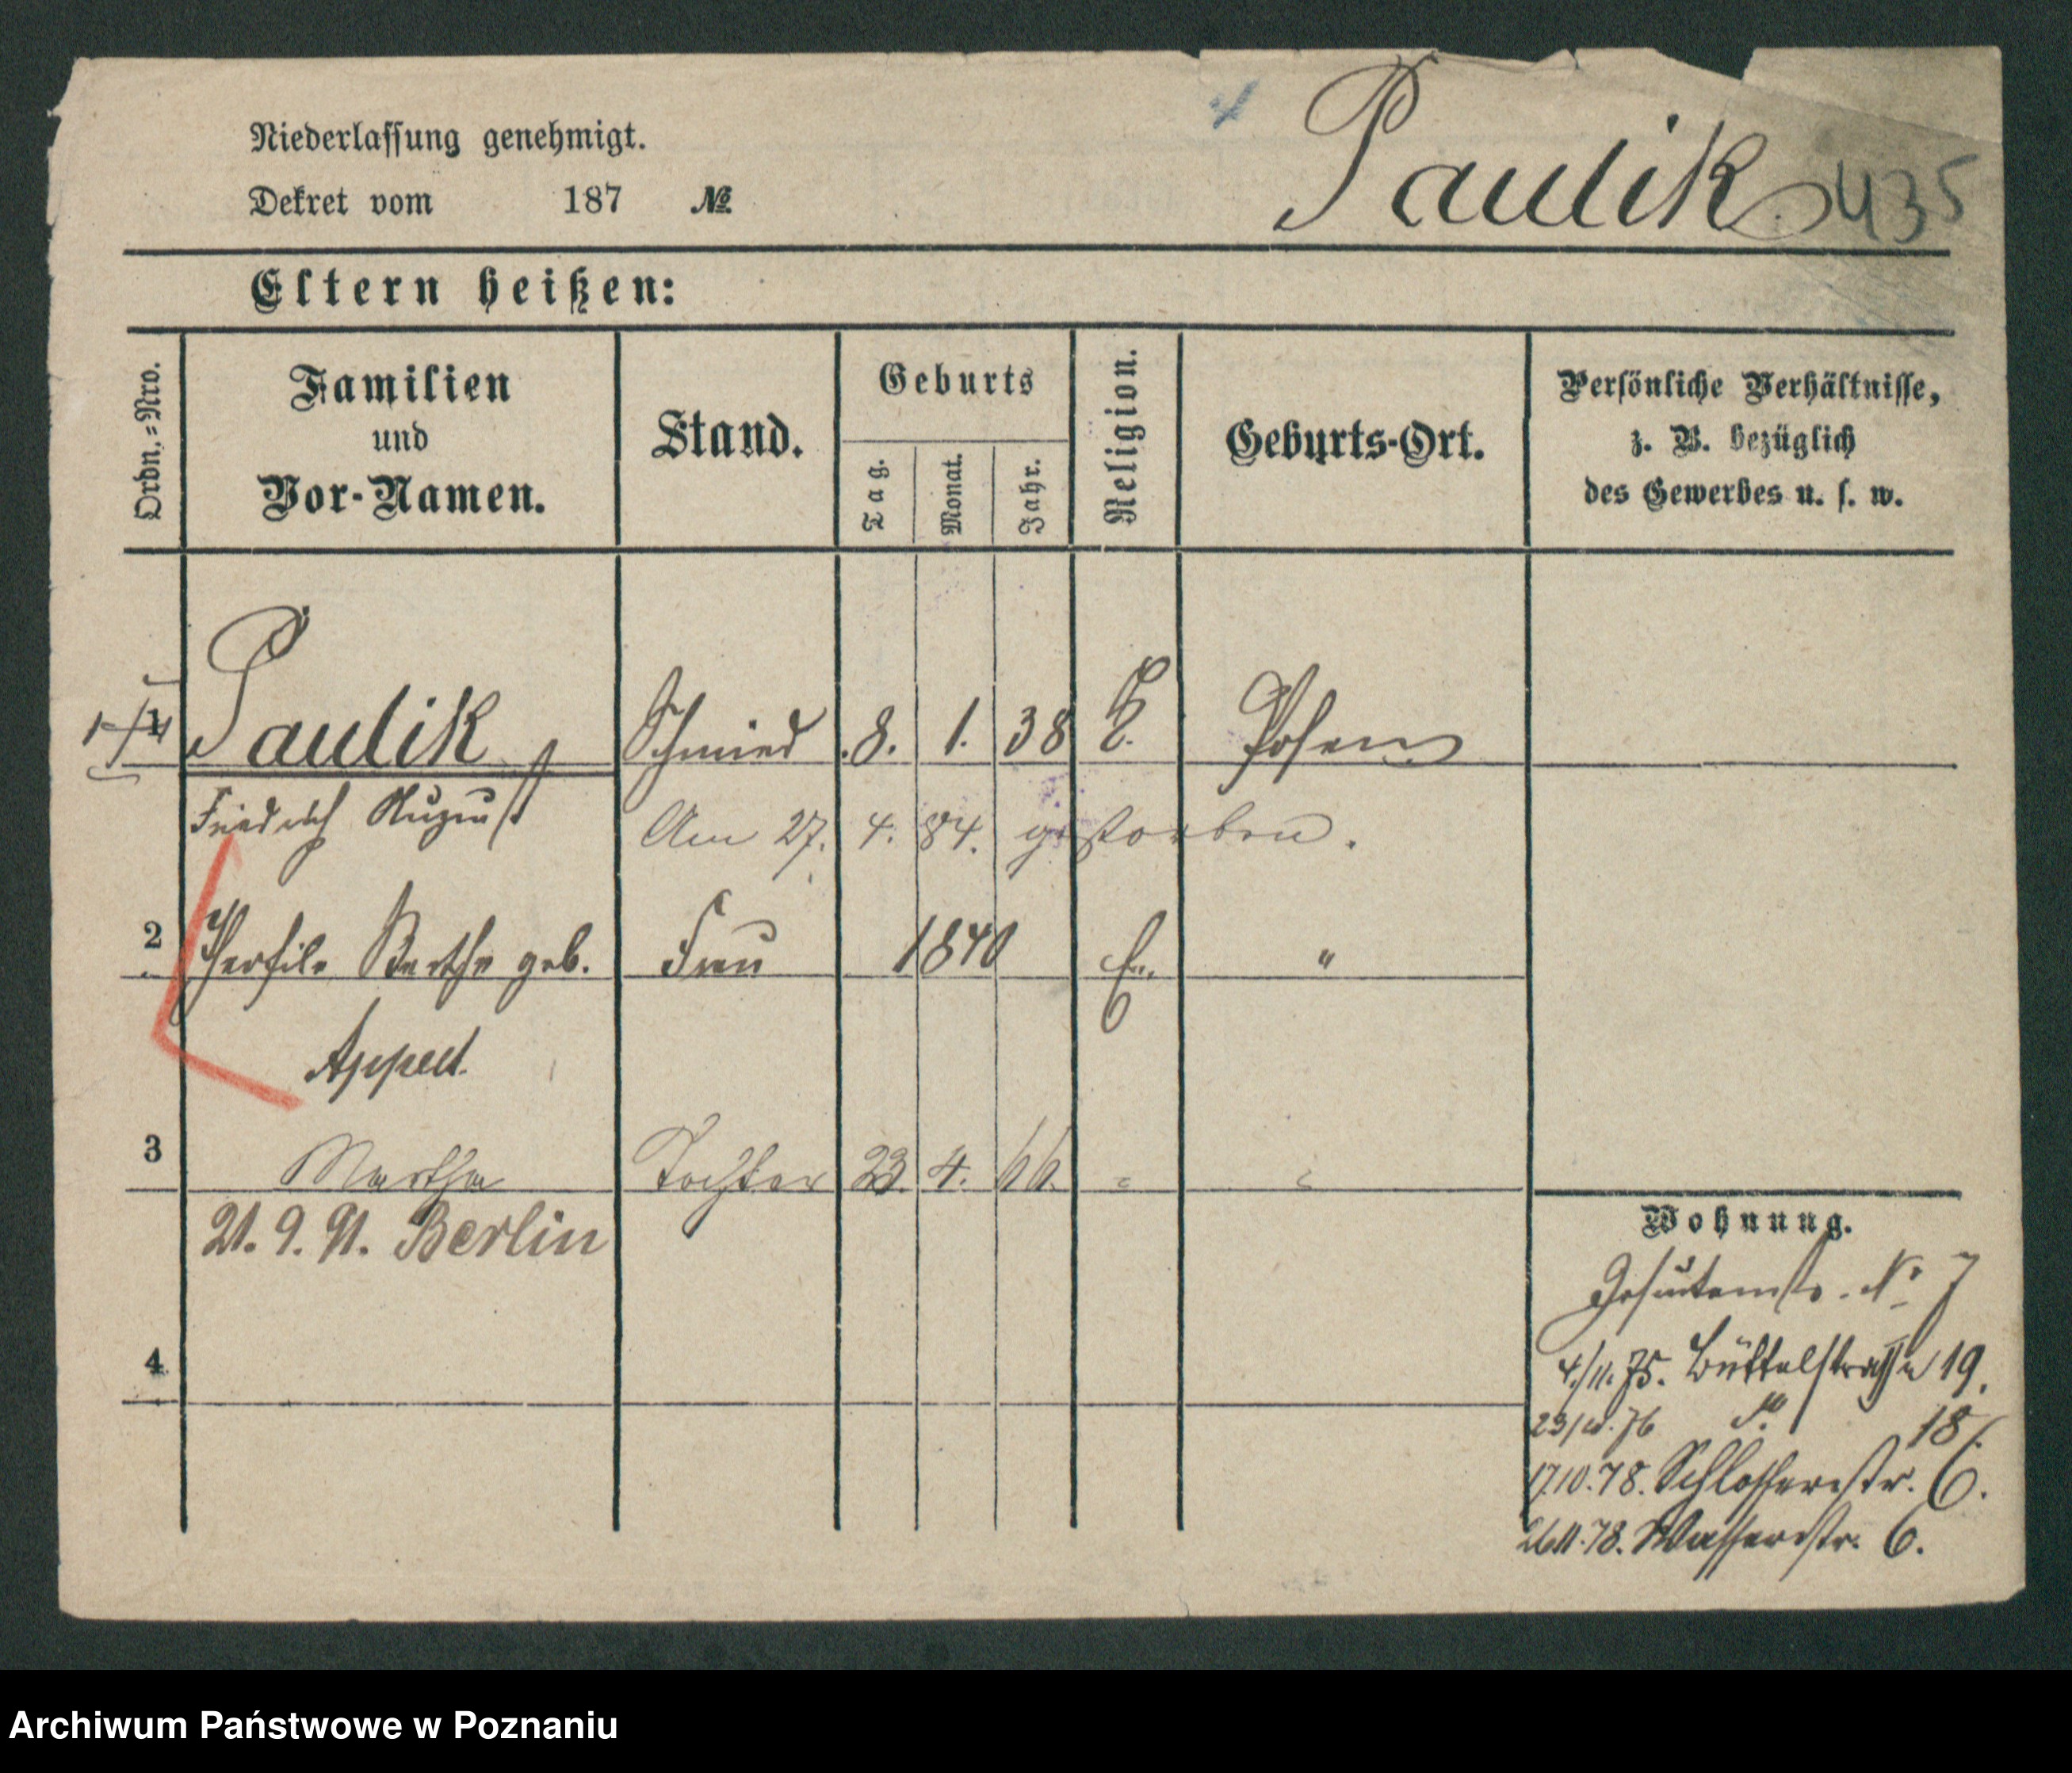 Niederlassung genehmigt.
Dekret vom 187 №
Paulik 435
Eltern heißen:
Ordn.-Nro.
Familien
und
Vor-Namen.
Stand.
Geburts
Tag.
Monat.
Jahr.
Religion.
Geburts-Ort.
Persönliche Verhältnisse,
z. B. bezüglich
des Gewerbes u. s. w.
1 Paulik Schmied 8. 1. 38 E. Posen
Friedrich August Am 27. 4. 84. gestorben.
2 Berthe geb. Frau 1840 "
Appelt.
3 Martha Tochter 23. 4. 66. " "
21. 9. 91. Berlin
4
Wohnung.
Jesuitenstr. No 7
4./11. 75. Büttelstraße 19.
76 do 18.
17.10.78. Schlosserstr. 6.
26.11.78. Wasserstr. 6.
Archiwum Państwowe w Poznaniu